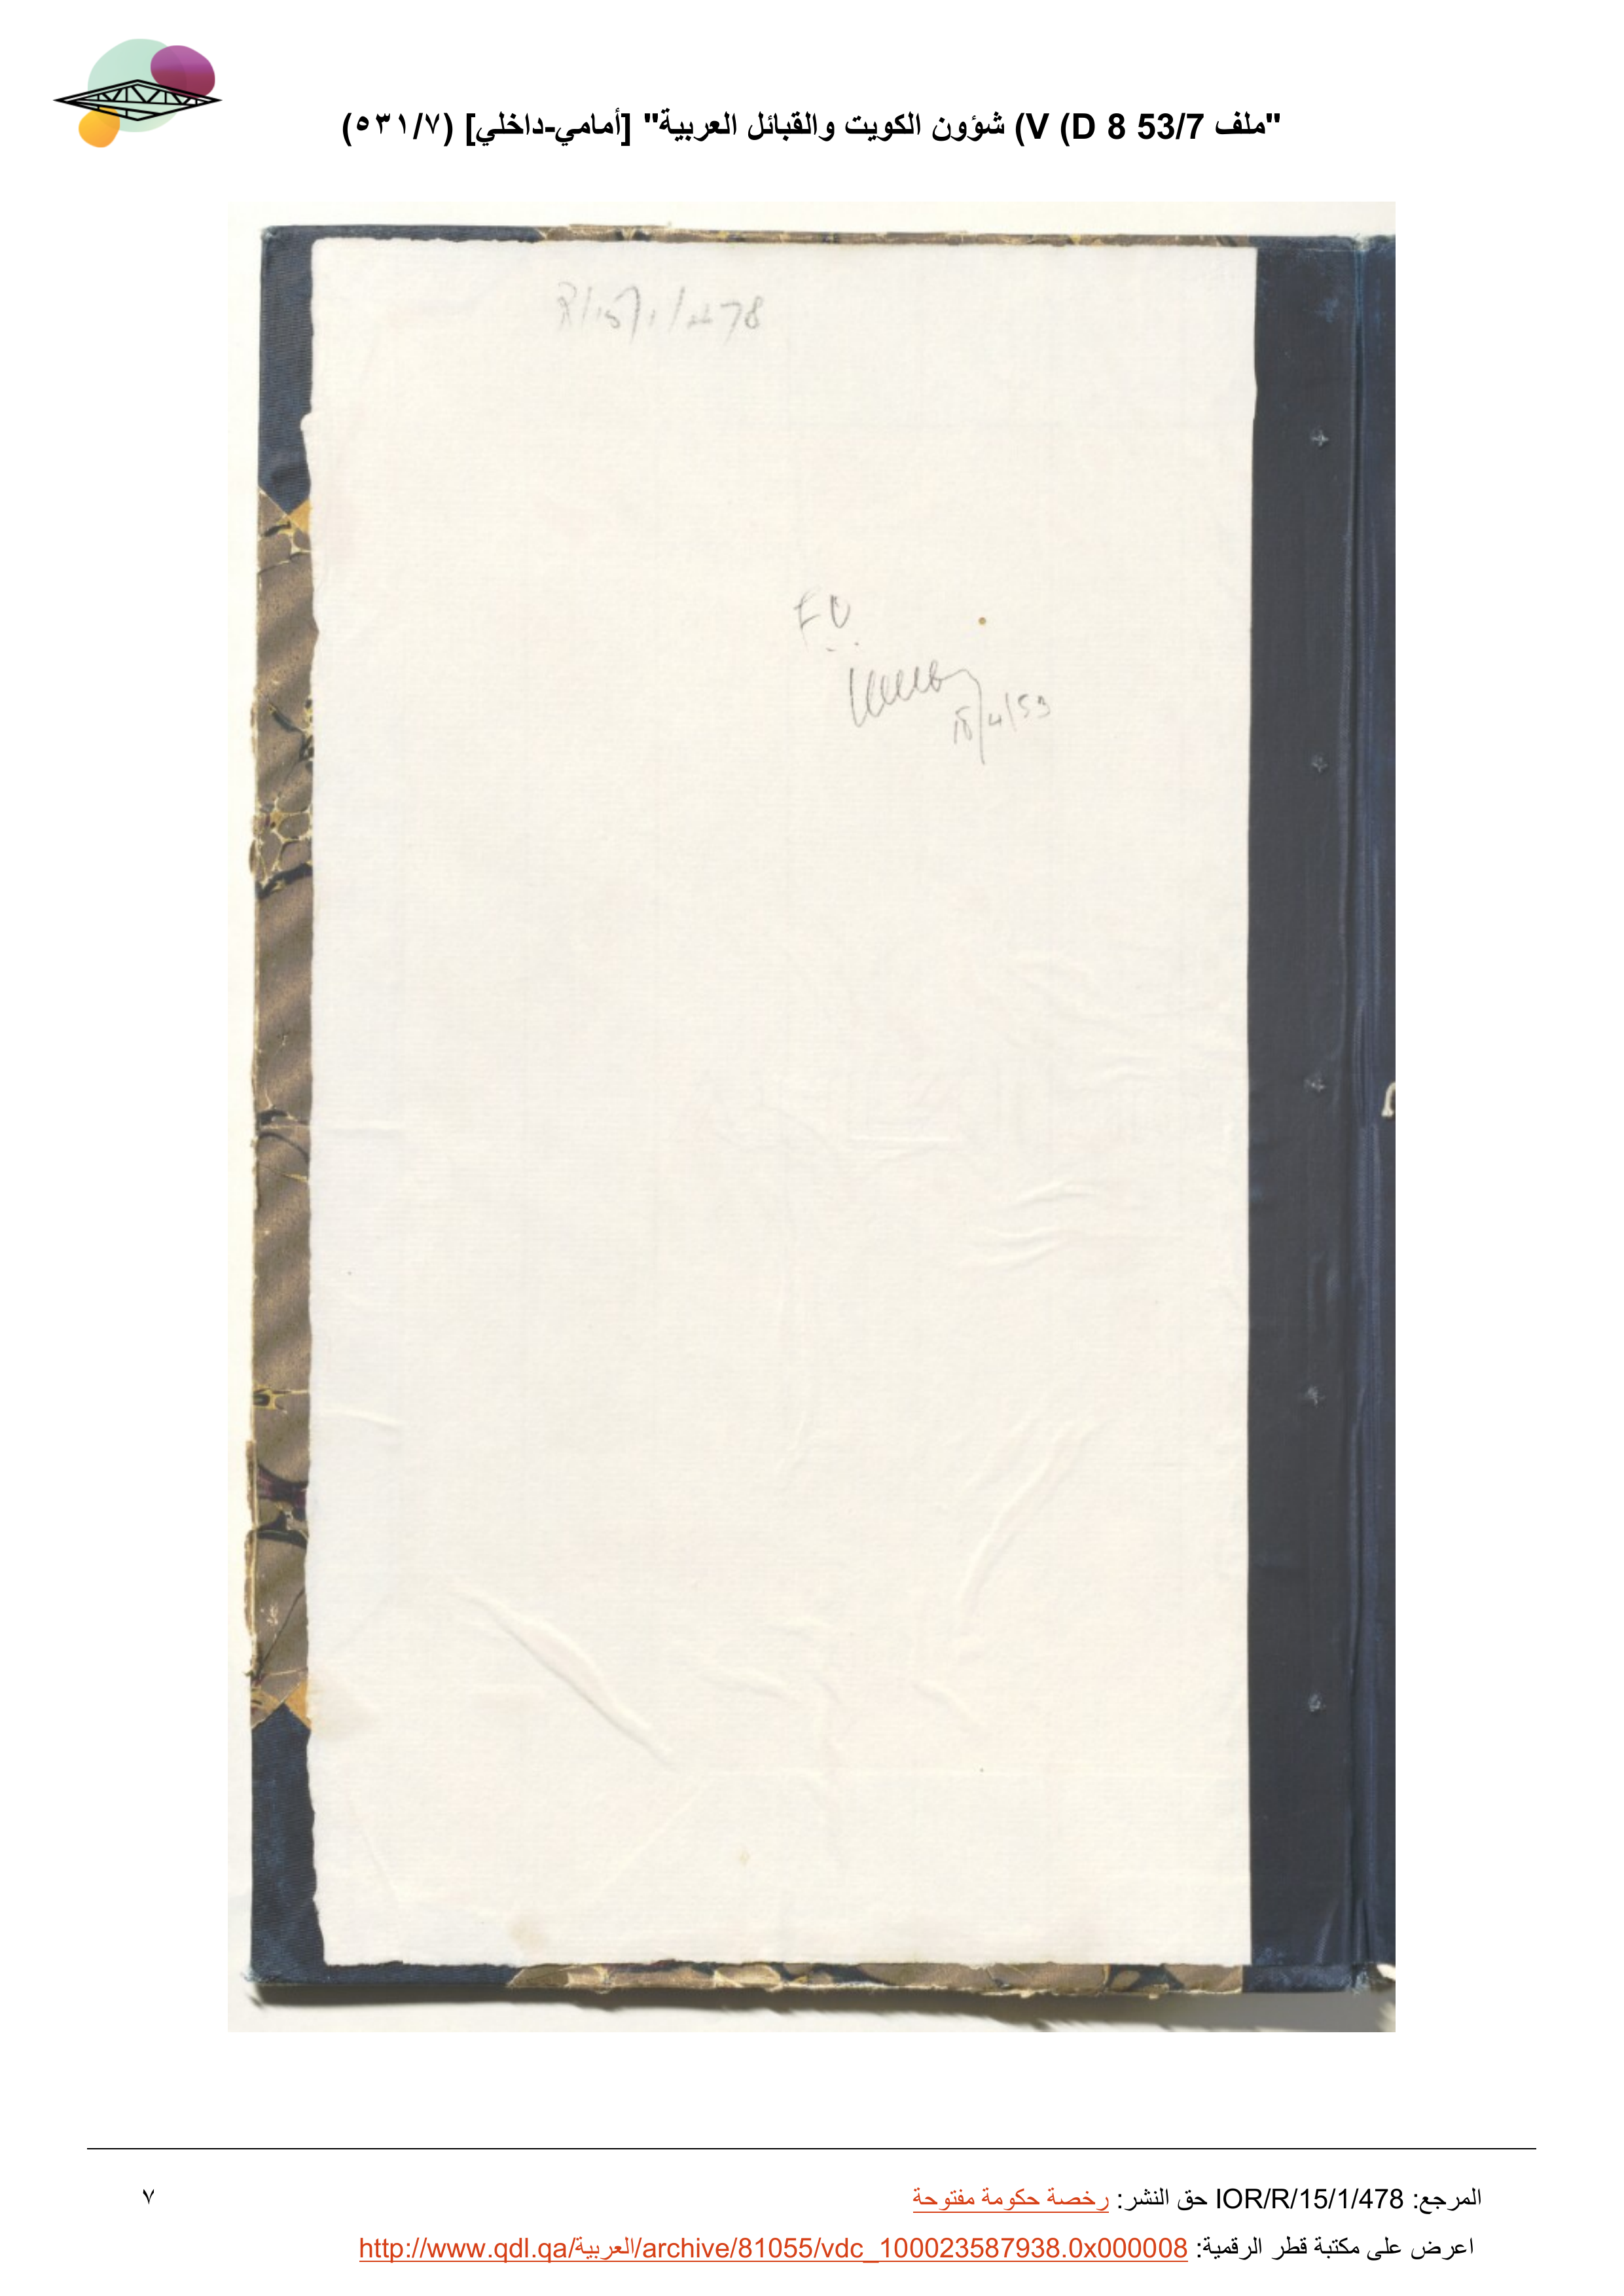 "ملف 53/7 8 D) V) شؤون الكويت والقبائل العربية" [أمامي-داخلي] (٥٣١/٧)
R/15/1/478
FO
18/4/53
المرجع: IOR/R/15/1/478 حق النشر: رخصة حكومة مفتوحة
٧
اعرض على مكتبة قطر الرقمية: http://www.qdl.qa/العربية/archive/81055/vdc_100023587938.0x000008